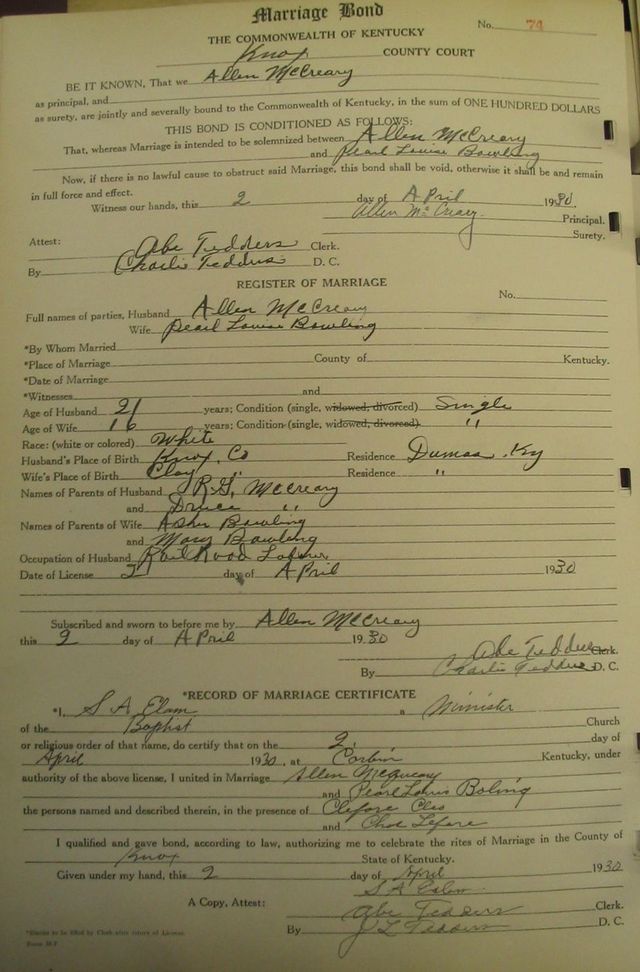 Marriage Bond
No. 74
THE COMMONWEALTH OF KENTUCKY
Knox COUNTY COURT
BE IT KNOWN, That we Allen McCreary
as principal, and
as surety, are jointly and severally bound to the Commonwealth of Kentucky, in the sum of ONE HUNDRED DOLLARS
THIS BOND IS CONDITIONED AS FOLLOWS:
That, whereas Marriage is intended to be solemnized between Allen McCreary
and Pearl Louise Bowling
Now, if there is no lawful cause to obstruct said Marriage, this bond shall be void, otherwise it shall be and remain
in full force and effect.
Witness our hands, this 2 day of April 1930
Allen McCreary Principal.
Surety.
Attest: Abe Tedders Clerk.
By Charlie Tedders D. C.
REGISTER OF MARRIAGE
No.
Full names of parties, Husband Allen McCreary
Wife Pearl Louise Bowling
*By Whom Married
*Place of Marriage County of Kentucky.
*Date of Marriage
*Witnesses and
Age of Husband 21 years; Condition (single, widowed, divorced) Single
Age of Wife 16 years; Condition (single, widowed, divorced) "
Race: (white or colored) White
Husband's Place of Birth Knox, Co Residence Dumas, Ky
Wife's Place of Birth Clay " Residence "
Names of Parents of Husband R.G. McCreary
and "
Names of Parents of Wife Asher Bowling
and Mary Bowling
Occupation of Husband Rail Road Laborer
Date of License 2 day of April 1930
Subscribed and sworn to before me by Allen McCreary
this 2 day of April 1930
Abe Tedders Clerk.
By Charlie Tedders D. C.
*RECORD OF MARRIAGE CERTIFICATE
*I, S A Elam a Minister
of the Baptist Church
or religious order of that name, do certify that on the 2 day of
April 1930, at Corbin Kentucky, under
authority of the above license, I united in Marriage Allen
and Pearl Louis Boling
the persons named and described therein, in the presence of Cleo
and
I qualified and gave bond, according to law, authorizing me to celebrate the rites of Marriage in the County of
Knox State of Kentucky.
Given under my hand, this 2 day of April 1930
S A
A Copy, Attest: Abe Tedders Clerk.
By J L Tedders D. C.
*Blanks to be filled by Clerk after return of License.